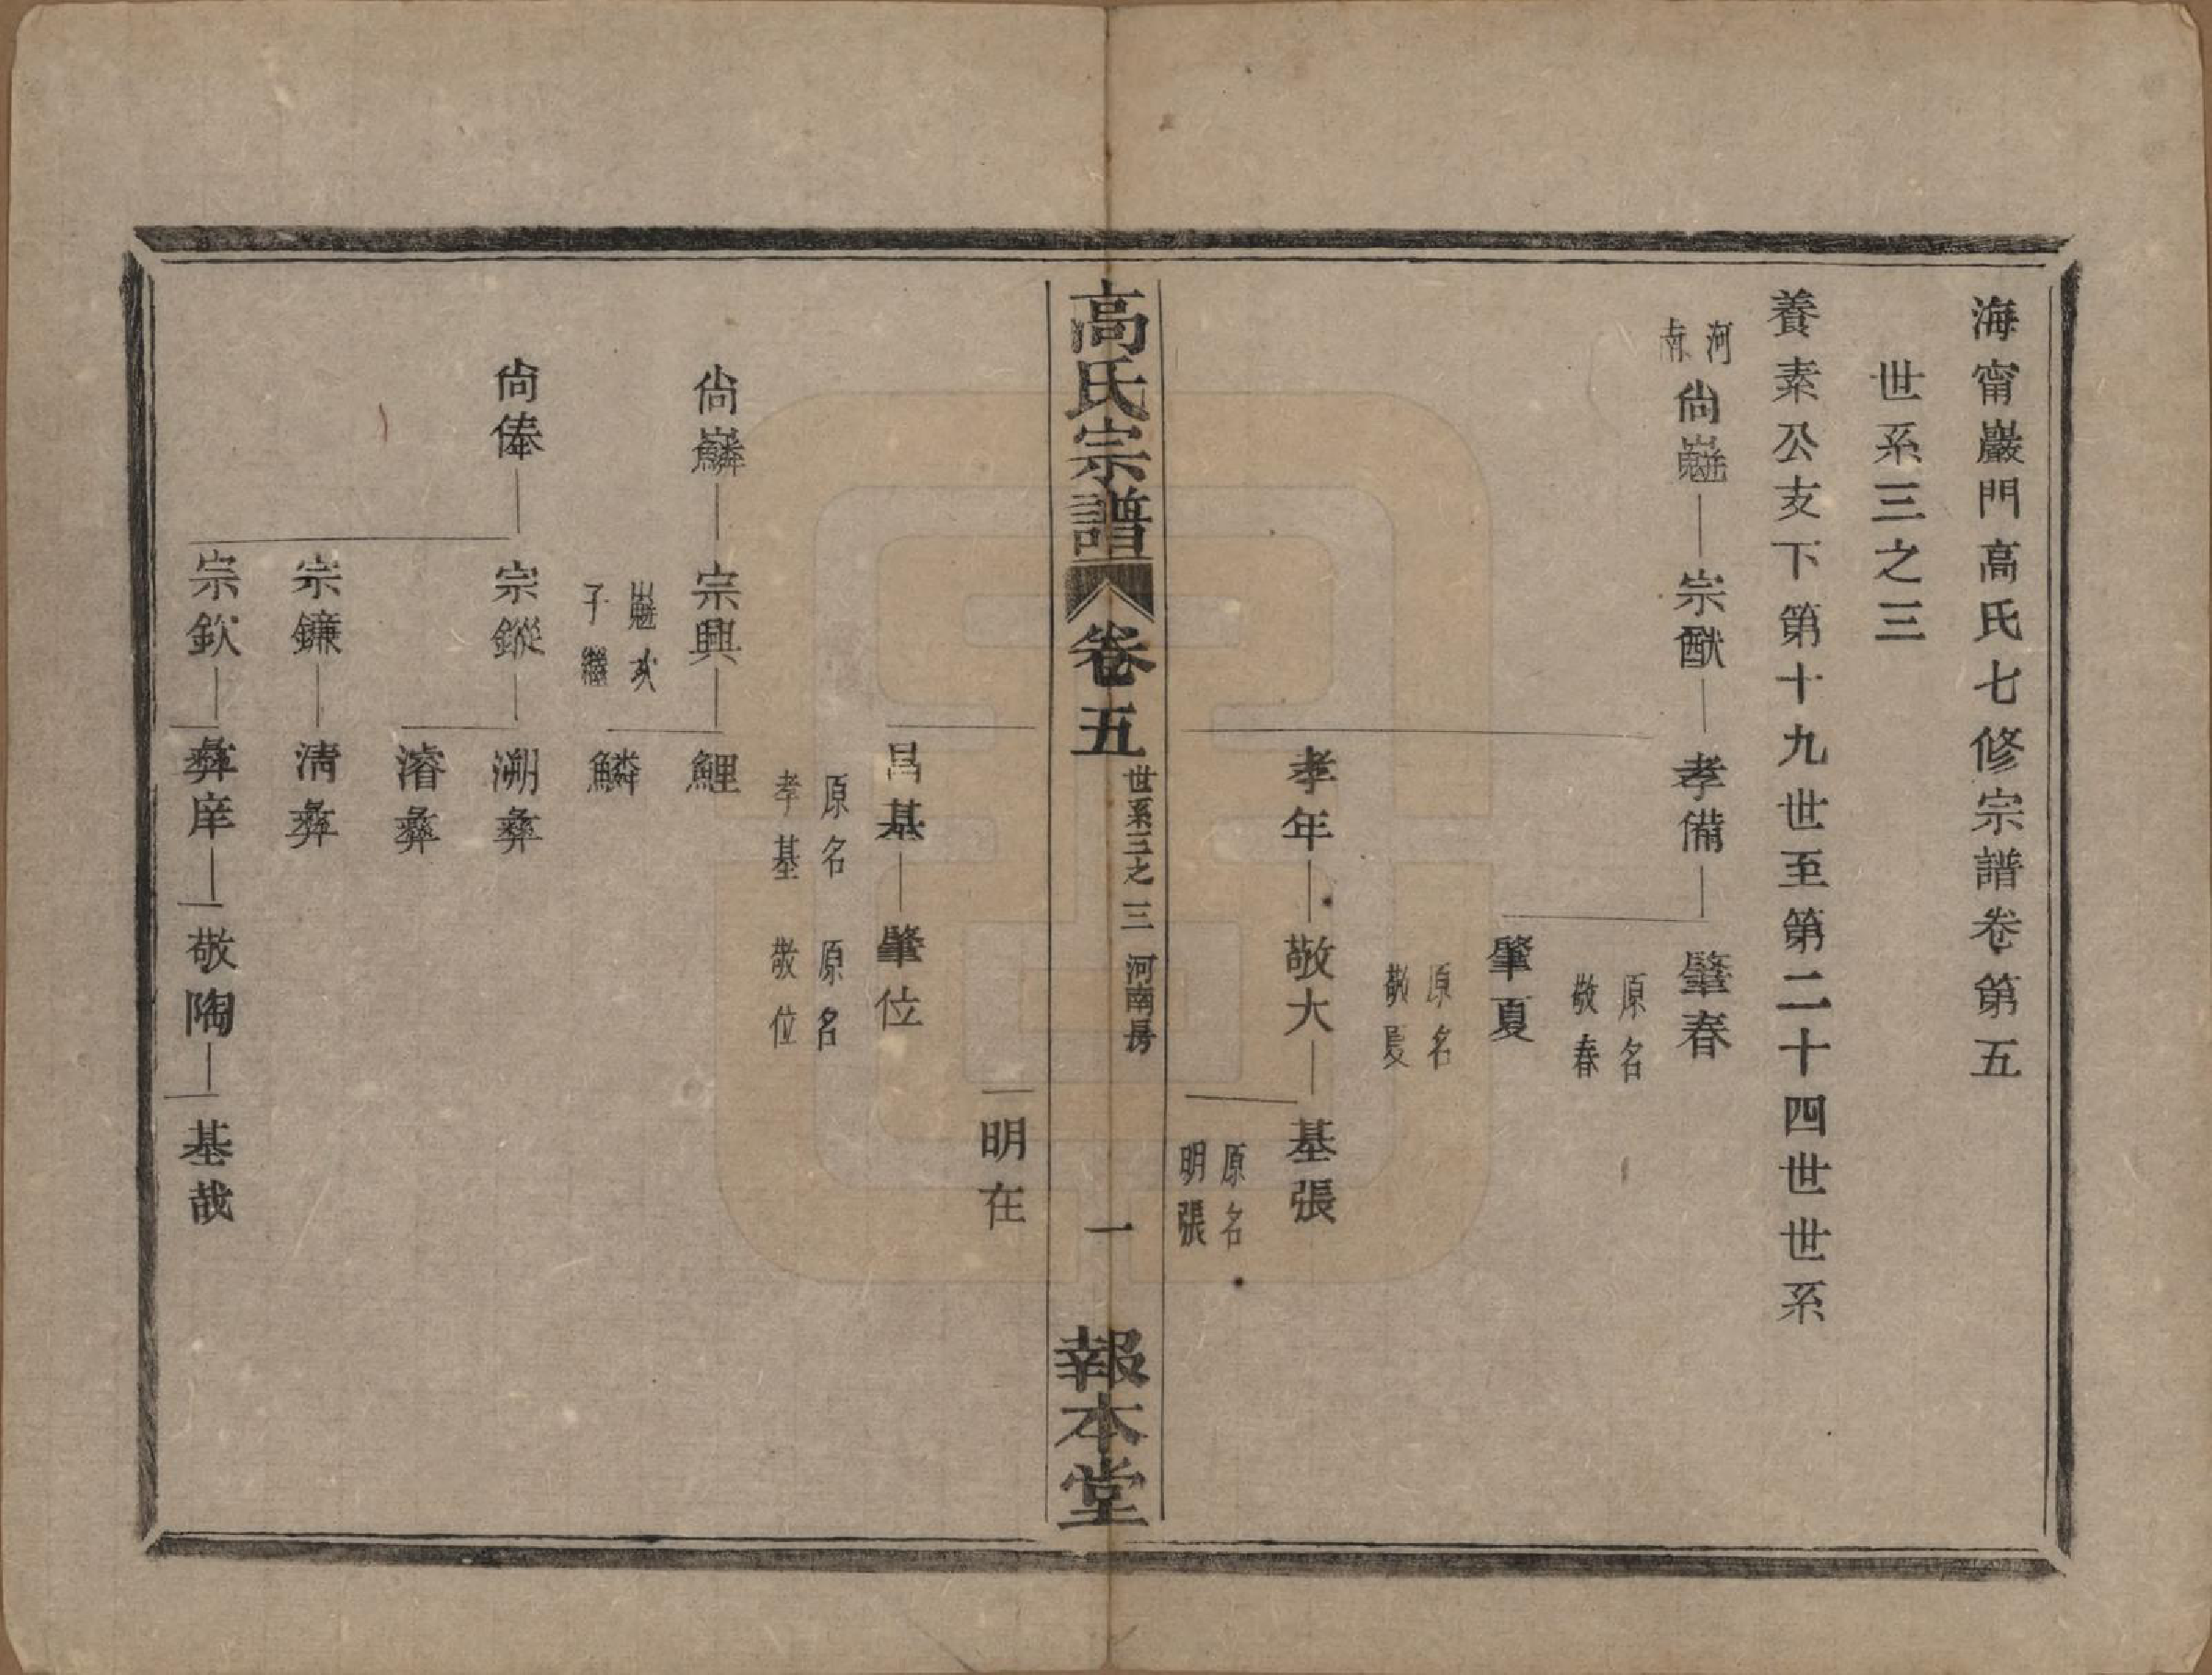 海甯巖門高氏七修宗譜卷第五
世系三之三
養素公支下第十九世至第二十四世世系
河南
尙 宗猷 孝備 肇春
原名敬春
肇夏
原名敬夏
孝年 敬大 基張
原名明張
高氏宗譜 卷五 世系三之三 河南房 一 報本堂
明在
昌基 肇位
原名孝基 原名敬位
尙 宗興 鯉
次子繼
鱗
尙俸 宗鏦 溯彝
濬彝
宗鐮 清彝
宗欽 彝庠 敬陶 基哉